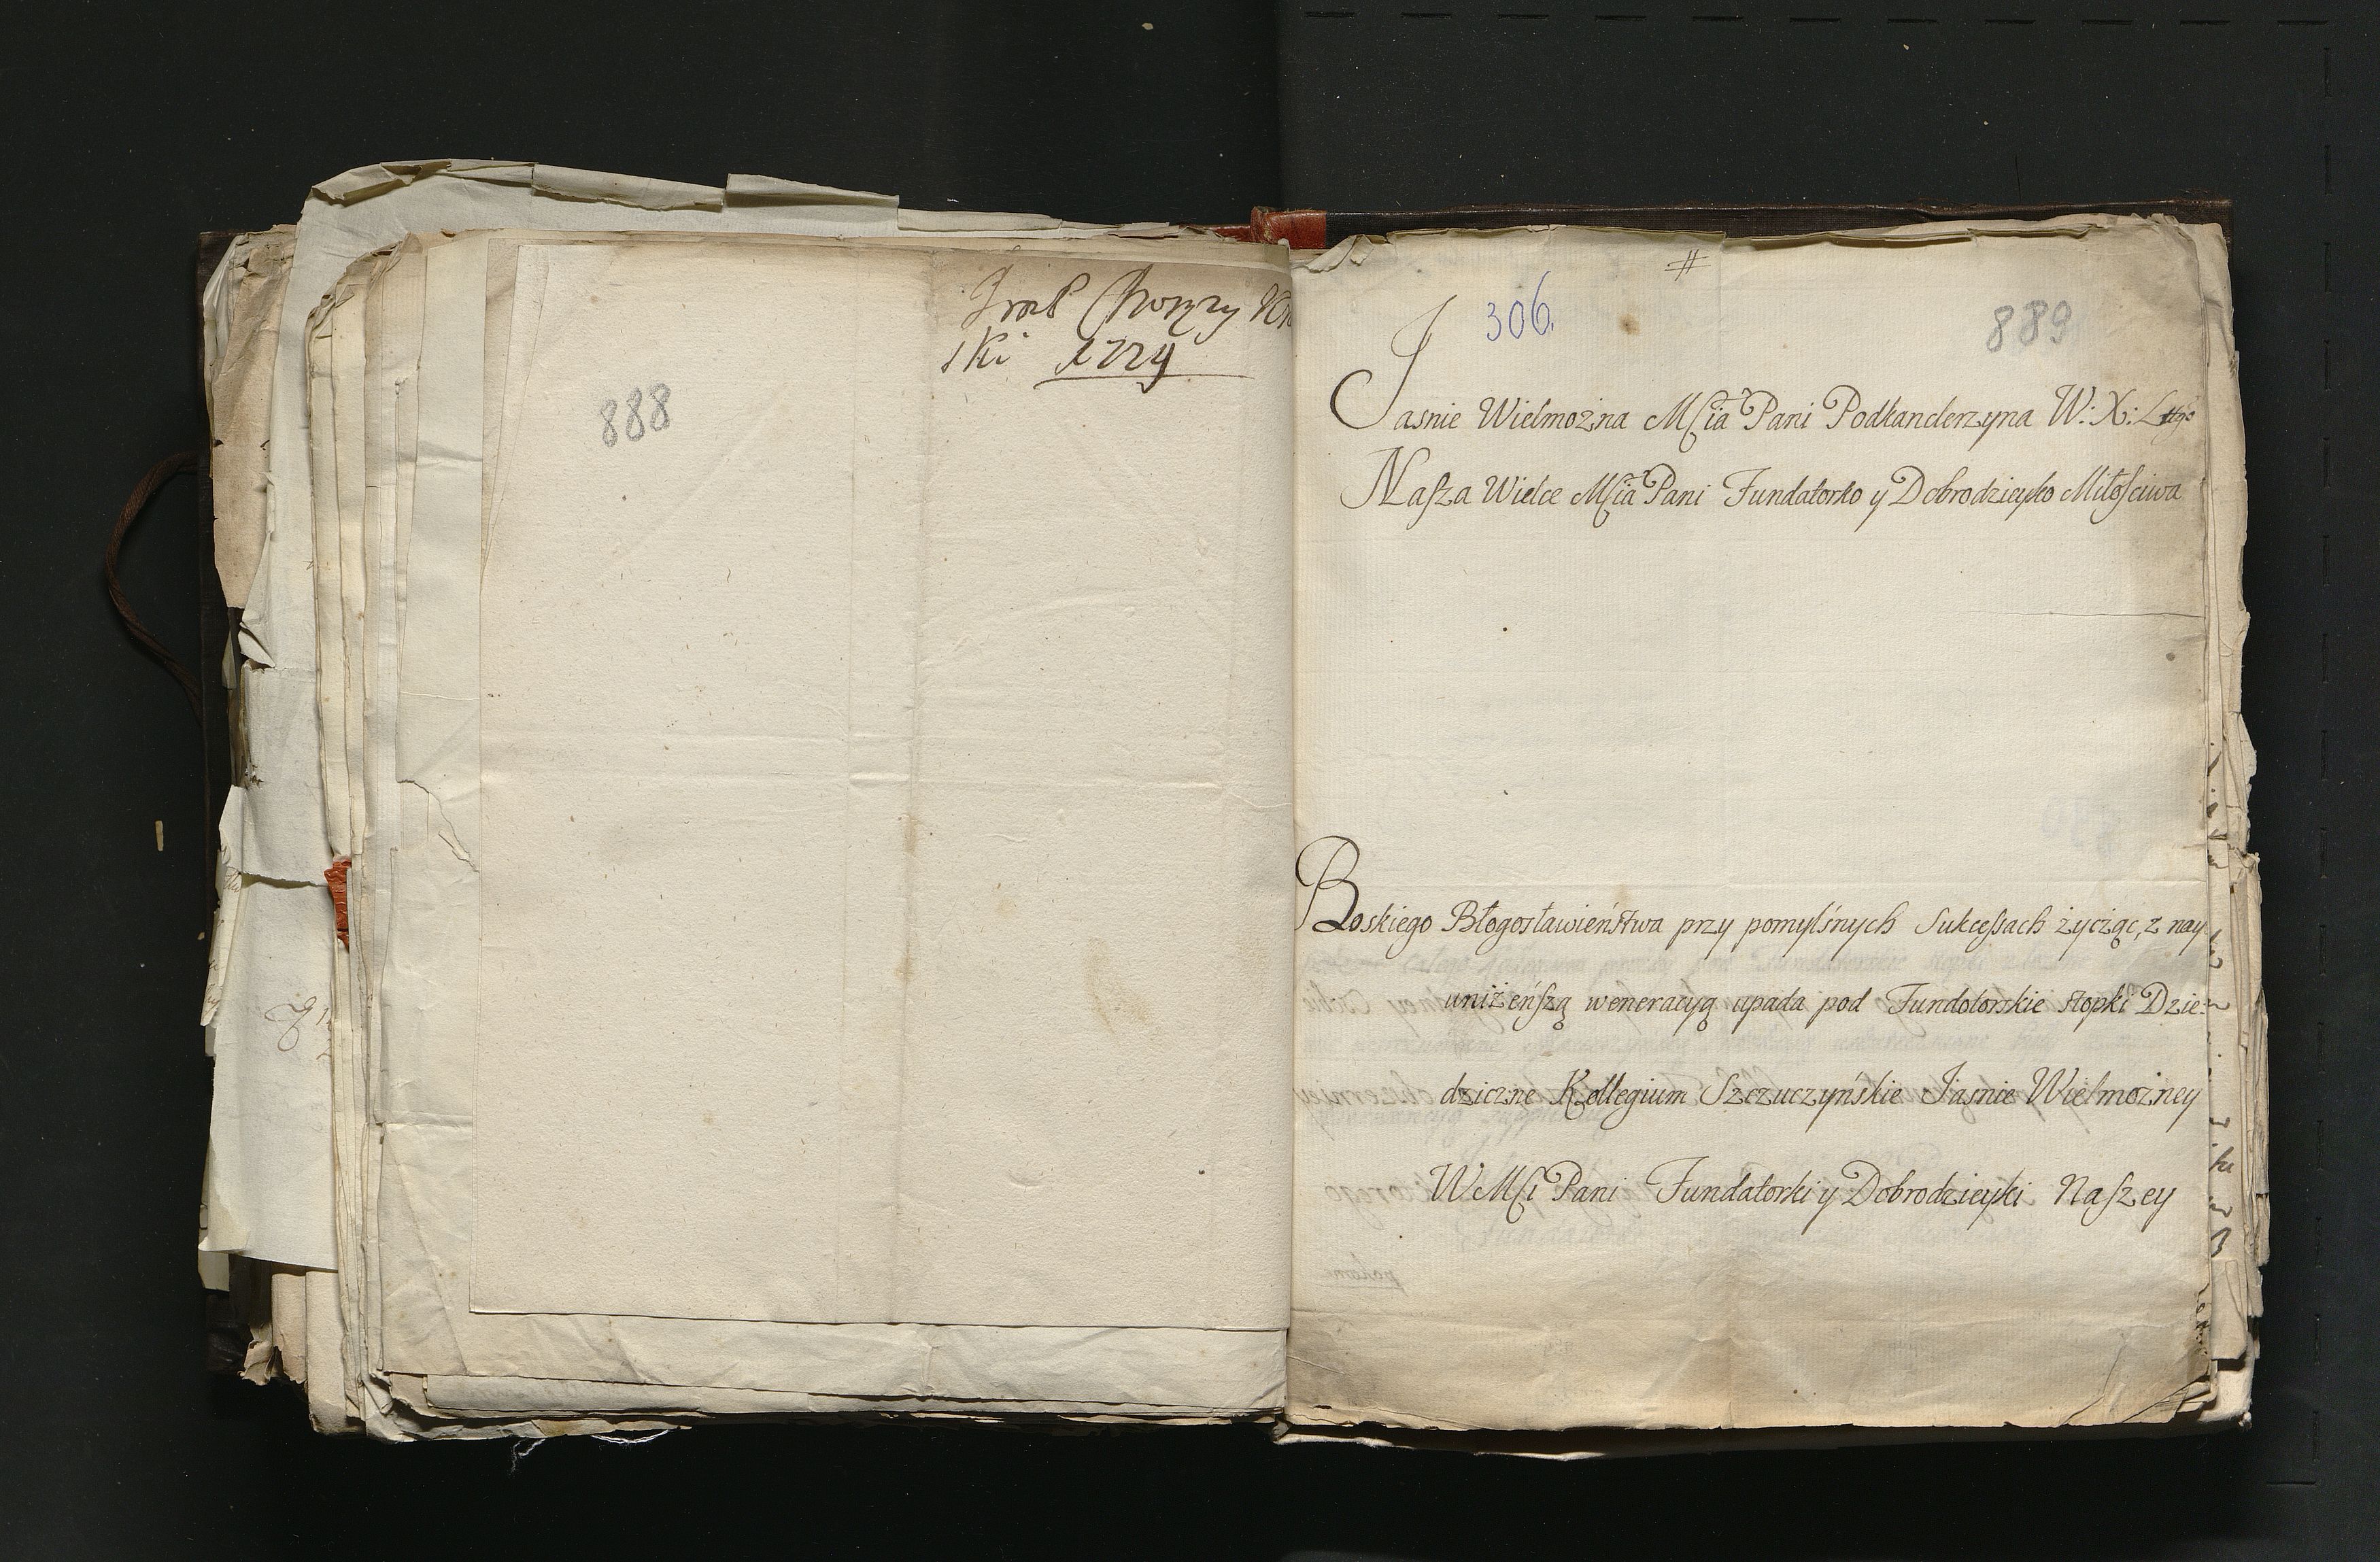 888
Chorązy
ski 1724
#
306.
889
Jasnie Wielmożna Mscia Pani Podkanclerzyna W: X: Lttgo
Nasza Wielce Mscia Pani Fundatorko y Dobrodzieyko Miłosciwa
Boskiego Błogosławieństwa przy pomyslnych Sukcessach życząc, z nay
uniżeńszą weneracyą upada pod Fundatorskie stopki Dzie-
dziczne Kollegium Szczuczyńskie Jasnie Wielmożney
WMsci Pani Fundatorki y Dobrodzieyki Naszey